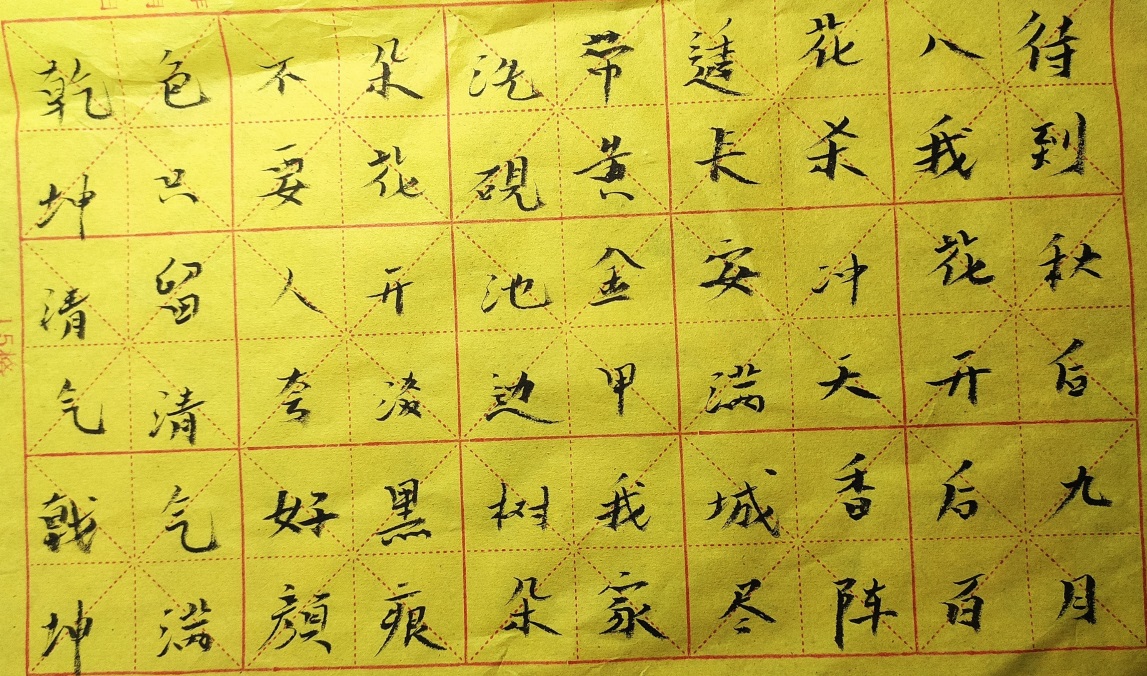 待到秋后九月
八我花开后百
花杀冲天香阵
透长安满城尽
带黄金甲我家
洗砚池边树朵
朵花开淡黑痕
不要人夸好顏
色只留清气满
乾坤清气戟坤